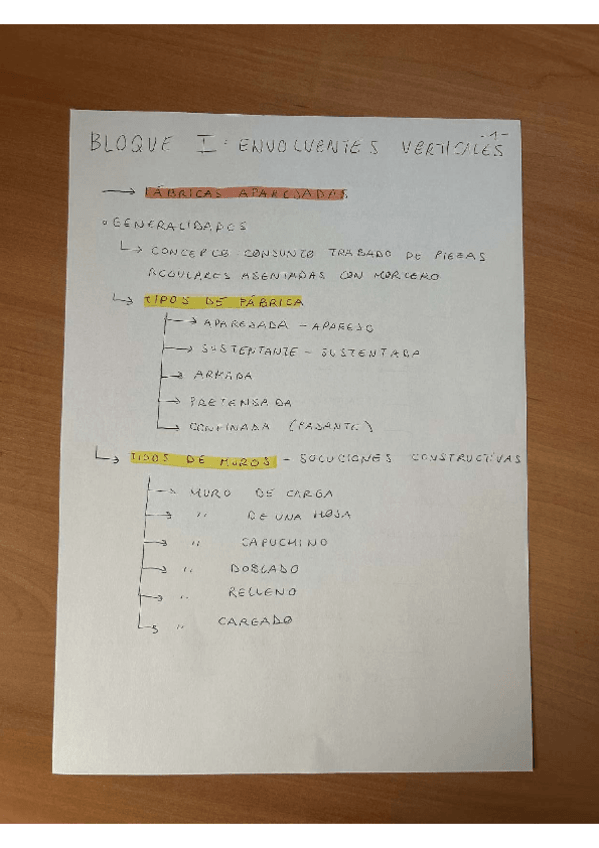 -1-
BLOQUE I: ENVOLVENTES VERTICALES
→ FÁBRICAS APAREJADAS
• GENERALIDADES
↳ CONCEPTO CONJUNTO TRABADO DE PIEZAS
REGULARES ASENTADAS CON MORTERO
↳ TIPOS DE FÁBRICA
→ APAREJADA - APAREJO
→ SUSTENTANTE - SUSTENTADA
→ ARMADA
→ PRETENSADA
→ CONFINADA
↳ TIPOS DE MUROS - SOLUCIONES CONSTRUCTIVAS
→ MURO DE CARGA
→ " DE UNA HOJA
→ " CAPUCHINO
→ " DOBLADO
→ " RELLENO
→ " CAREADO